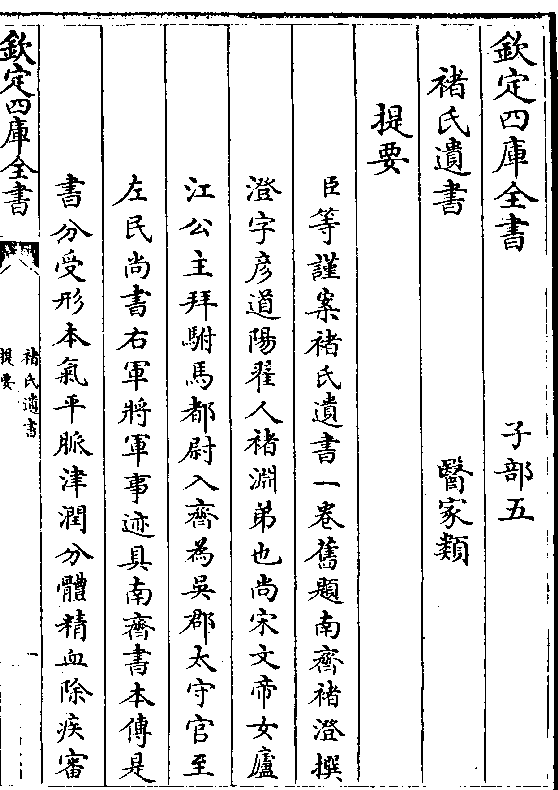 欽定四庫全書 子部五
褚氏遺書 醫家類
提要
臣等謹案褚氏遺書一卷舊題南齊褚澄撰
澄字彦道陽翟人褚淵弟也尚宋文帝女廬
江公主拜駙馬都尉入齊為吳郡太守官至
左民尚書右軍將軍事迹具南齊書本傳是
書分受形本氣平脈津潤分體精血除疾審
欽定四庫全書
褚氏遺書
提要
一